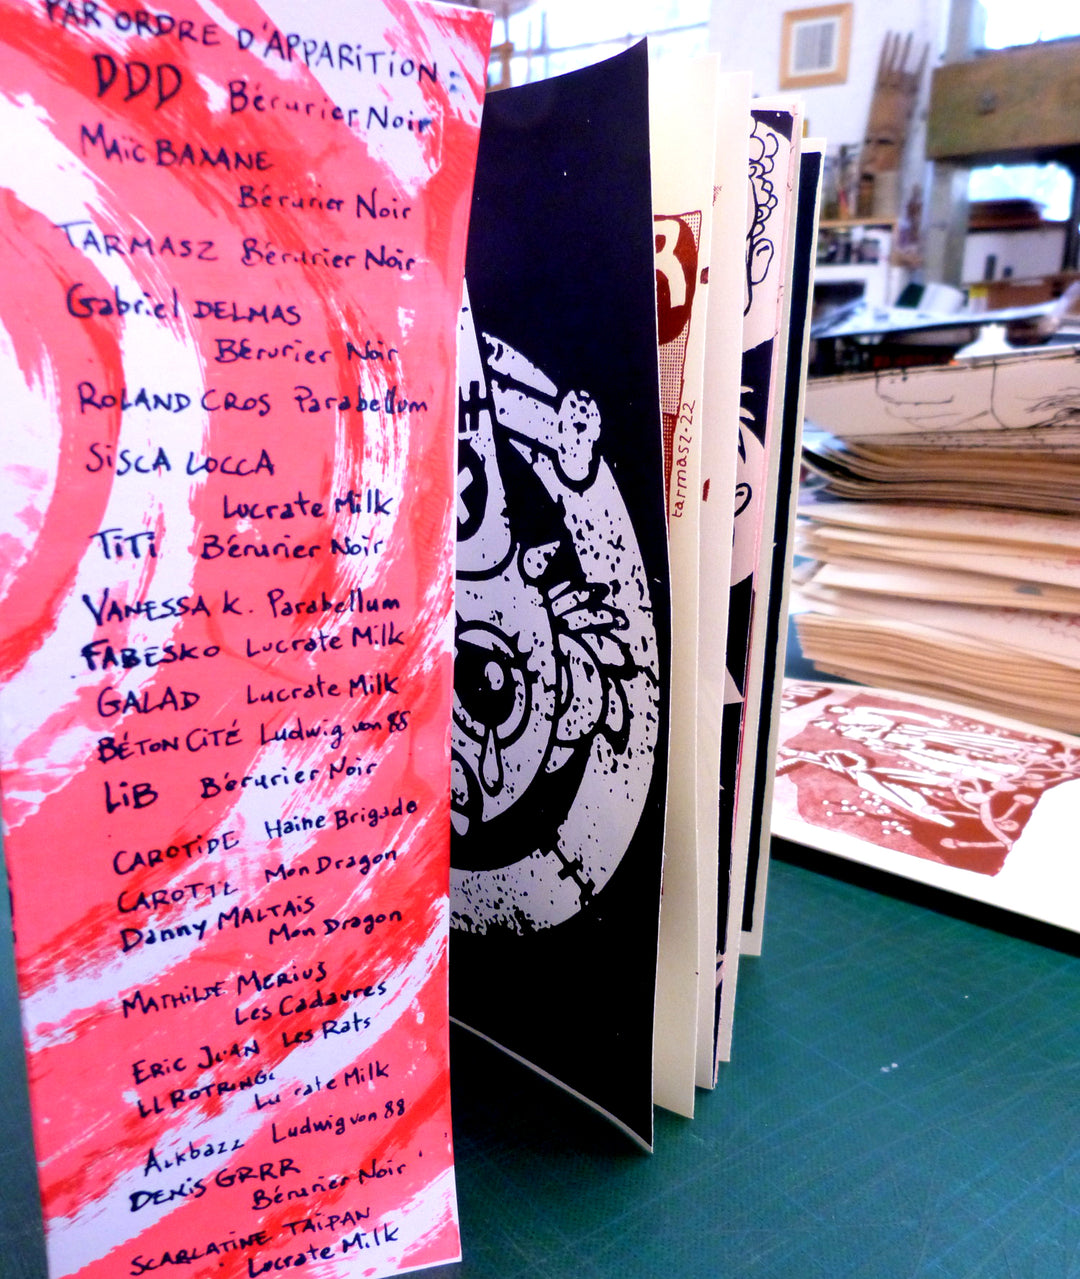 PAR ORDRE D'APPARITION :
DDD Bérurier Noir
Maïc BAXANE
Bérurier Noir
TARMASZ Bérurier Noir
Gabriel DELMAS
Bérurier Noir
ROLAND CROS Parabellum
SiSCA LOCCA
Lucrate Milk
TiTi Bérurier Noir
VANESSA K. Parabellum
FABESKO Lucrate Milk
GALAD Lucrate Milk
BÉTON CiTÉ Ludwig von 88
LiB Bérurier Noir
CAROTiDE Haine Brigade
CAROTIL Mon Dragon
Danny MALTAiS
Mon Dragon
MATHILDE MERIUS
Les Cadavres
ERIC JUAN Les Rats
LL ROTRING
Lucrate Milk
ALKbazz Ludwig von 88
DENiS GRRR
Bérurier Noir
SCARLATiNE TAÏPAN
Lucrate Milk
R
tarmasz.22